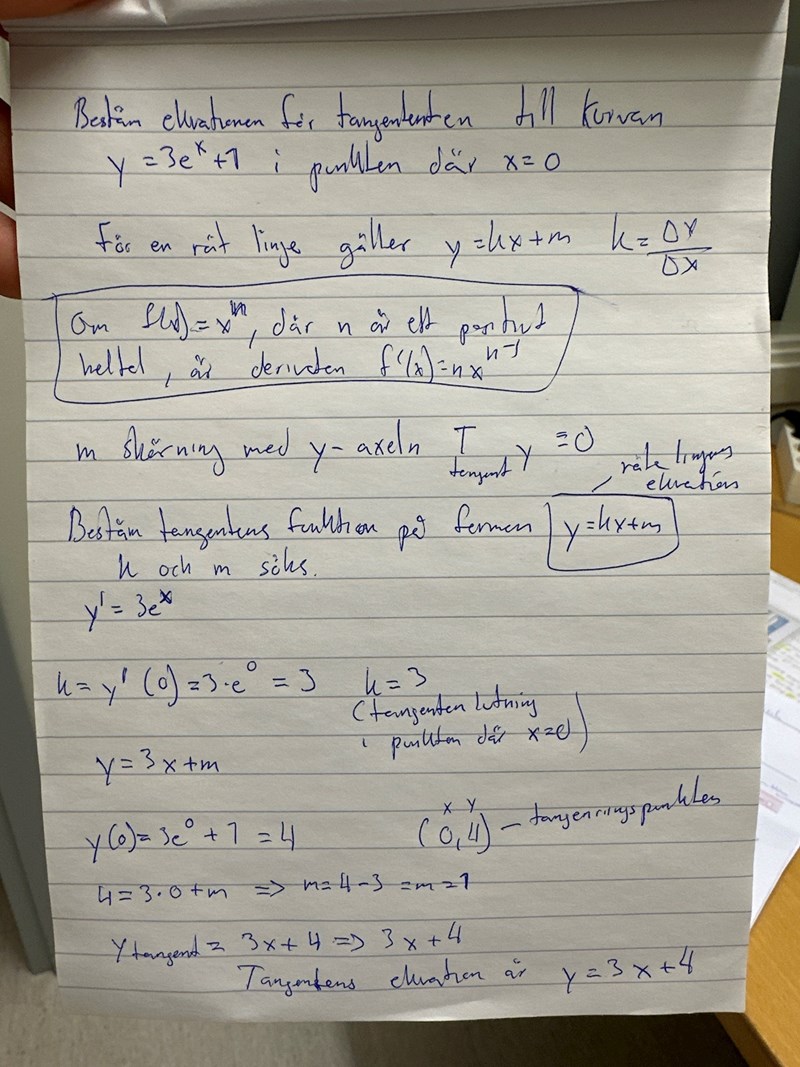 Bestäm ekvationen för tangententen till kurvan
y = 3eˣ + 1 i punkten där x = 0
För en rät linge gäller y = kx + m k = Δy/Δx
Om f(x) = xⁿ, där n är ett positivt
heltal, är derivatan f'(x) = nxⁿ⁻¹
m skärning med y-axeln T tangent y = 0
räta linjens
ekvation
Bestäm tangentens funktion på formen y = kx + m
k och m söks.
y' = 3eˣ
k = y'(0) = 3·e⁰ = 3 k = 3
(tangenten lutning
i punkten där x = 0)
y = 3x + m
x y
y(0) = 3e⁰ + 1 = 4 (0,4) – tangeringspunkten
4 = 3·0 + m => m = 4 - 3 = m = 1
y tangent = 3x + 4 => 3x + 4
Tangentens ekvation är y = 3x + 4